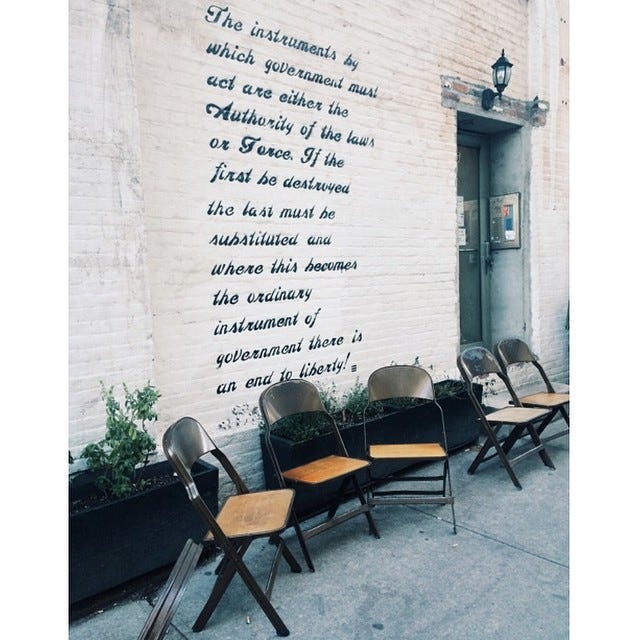 The instruments by
which government must
act are either the
Authority of the laws
or Force. If the
first be destroyed
the last must be
substituted and
where this becomes
the ordinary
instrument of
government there is
an end to liberty!